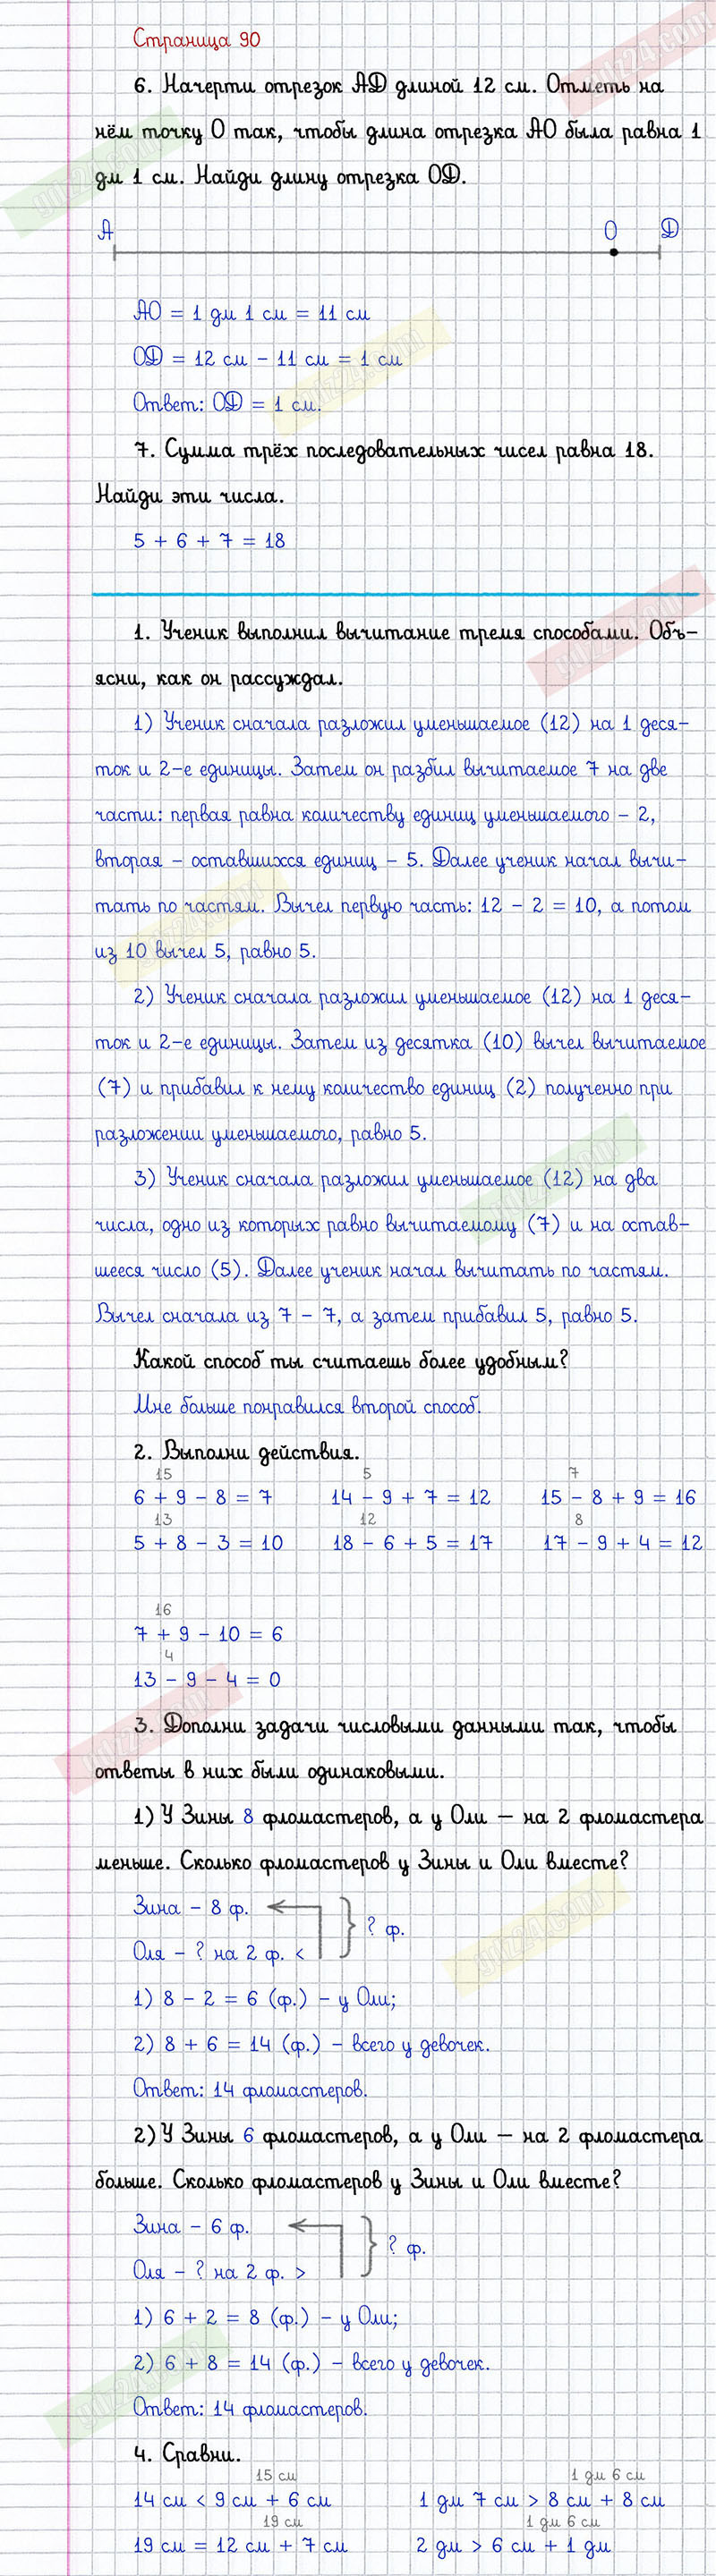 Страница 90
6. Начерти отрезок АД длиной 12 см. Отметь на
нём точку О так, чтобы длина отрезка АО была равна 1
дм 1 см. Найди длину отрезка ОД.
А О Д
АО = 1 дм 1 см = 11 см
ОД = 12 см - 11 см = 1 см
Ответ: ОД = 1 см.
7. Сумма трёх последовательных чисел равна 18.
Найди эти числа.
5 + 6 + 7 = 18
1. Ученик выполнил вычитание тремя способами. Объ-
ясни, как он рассуждал.
1) Ученик сначала разложил уменьшаемое (12) на 1 деся-
ток и 2-е единицы. Затем он разбил вычитаемое 7 на две
части: первая равна количеству единиц уменьшаемого - 2,
вторая - оставшихся единиц - 5. Далее ученик начал вычи-
тать по частям. Вычел первую часть: 12 - 2 = 10, а потом
из 10 вычел 5, равно 5.
2) Ученик сначала разложил уменьшаемое (12) на 1 деся-
ток и 2-е единицы. Затем из десятка (10) вычел вычитаемое
(7) и прибавил к нему количество единиц (2) полученно при
разложении уменьшаемого, равно 5.
3) Ученик сначала разложил уменьшаемое (12) на два
числа, одно из которых равно вычитаемому (7) и на остав-
шееся число (5). Далее ученик начал вычитать по частям.
Вычел сначала из 7 - 7, а затем прибавил 5, равно 5.
Какой способ ты считаешь более удобным?
Мне больше понравился второй способ.
2. Выполни действия.
15 5 7
6 + 9 - 8 = 7 14 - 9 + 7 = 12 15 - 8 + 9 = 16
13 12 8
5 + 8 - 3 = 10 18 - 6 + 5 = 17 17 - 9 + 4 = 12
16
7 + 9 - 10 = 6
4
13 - 9 - 4 = 0
3. Дополни задачи числовыми данными так, чтобы
ответы в них были одинаковыми.
1) У Зины 8 фломастеров, а у Оли — на 2 фломастера
меньше. Сколько фломастеров у Зины и Оли вместе?
Зина - 8 ф.
? ф.
Оля - ? на 2 ф. <
1) 8 - 2 = 6 (ф.) - у Оли;
2) 8 + 6 = 14 (ф.) - всего у девочек.
Ответ: 14 фломастеров.
2) У Зины 6 фломастеров, а у Оли — на 2 фломастера
больше. Сколько фломастеров у Зины и Оли вместе?
Зина - 6 ф.
? ф.
Оля - ? на 2 ф. >
1) 6 + 2 = 8 (ф.) - у Оли;
2) 6 + 8 = 14 (ф.) - всего у девочек.
Ответ: 14 фломастеров.
4. Сравни.
15 см 1 дм 6 см
14 см < 9 см + 6 см 1 дм 7 см > 8 см + 8 см
19 см 1 дм 6 см
19 см = 12 см + 7 см 2 дм > 6 см + 1 дм